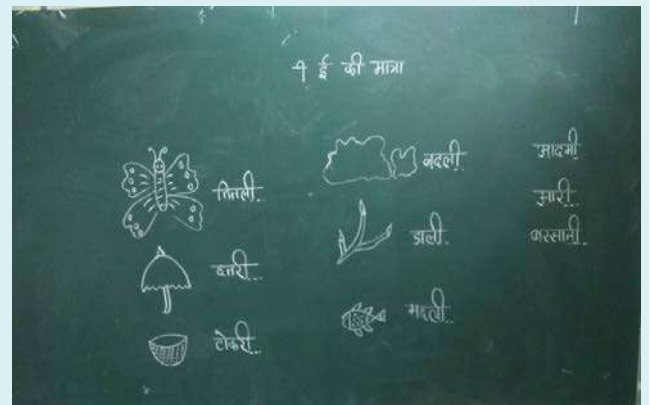 ी ई की मात्रा
तितली
छतरी
टोकरी
बदली
डाली
मछली
आदमी
आरी
बरसाती